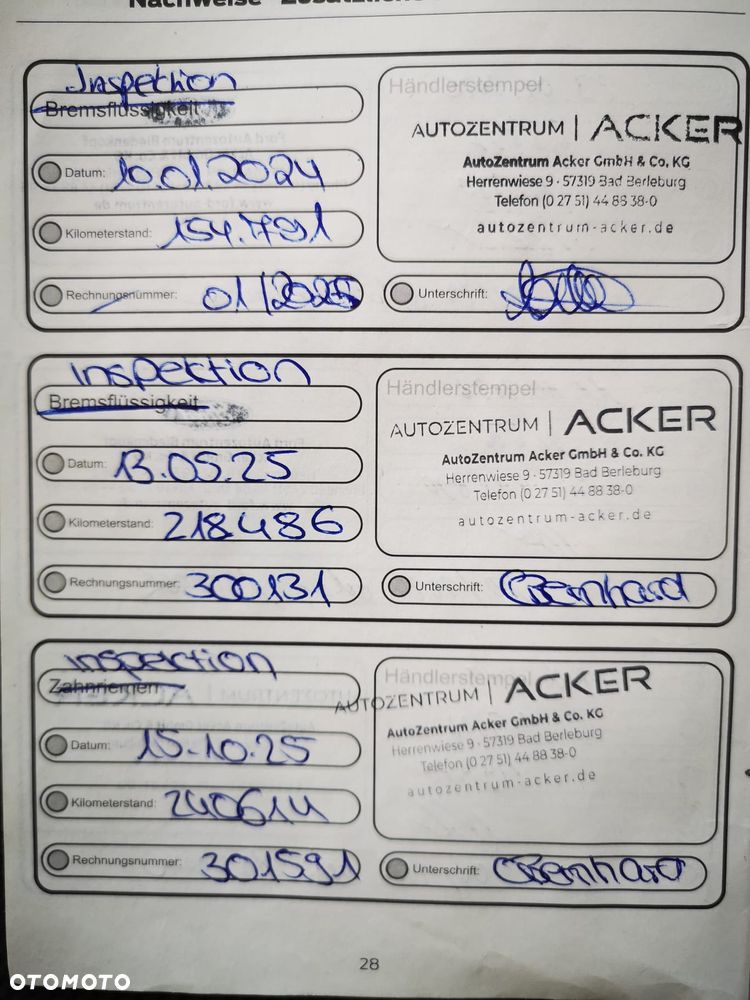 Nachweise
Inspektion
Bremsflüssigkeit
Datum: 10.01.2024
Kilometerstand: 154.791
Rechnungsnummer: 01/2025
Händlerstempel
AUTOZENTRUM | ACKER
AutoZentrum Acker GmbH & Co. KG
Herrenwiese 9 · 57319 Bad Berleburg
Telefon (0 27 51) 44 88 38-0
autozentrum-acker.de
Unterschrift:
Inspektion
Bremsflüssigkeit
Datum: 13.05.25
Kilometerstand: 218486
Rechnungsnummer: 300131
Händlerstempel
AUTOZENTRUM | ACKER
AutoZentrum Acker GmbH & Co. KG
Herrenwiese 9 · 57319 Bad Berleburg
Telefon (0 27 51) 44 88 38-0
autozentrum-acker.de
Unterschrift: CBernhard
Inspektion
Zahnriemen
Datum: 15.10.25
Kilometerstand: 240614
Rechnungsnummer: 301591
Händlerstempel
AUTOZENTRUM | ACKER
AutoZentrum Acker GmbH & Co. KG
Herrenwiese 9 · 57319 Bad Berleburg
Telefon (0 27 51) 44 88 38-0
autozentrum-acker.de
Unterschrift: CBernhard
28
OTOMOTO